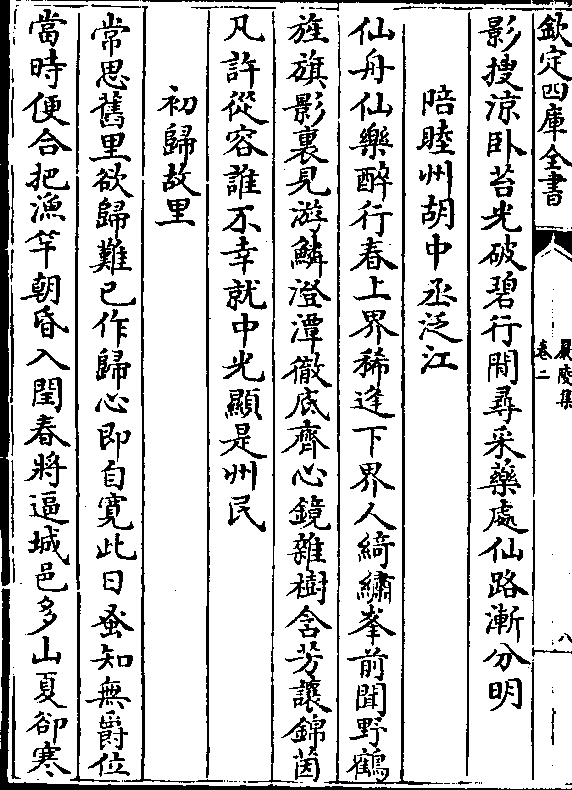 欽定四庫全書
嚴陵集
卷二
八
影搜涼卧苔光破碧行閒尋采藥處仙路漸分明
陪睦州胡中丞泛江
仙舟仙樂醉行春上界稀逢下界人綺繡峯前聞野鶴
旌旗影裏見游鱗澄潭徹底齊心鏡雜樹含芳讓錦茵
凡許從容誰不幸就中光顯是州民
初歸故里
常思舊里欲歸難已作歸心即自寛此日蚤知無爵位
當時便合把漁竿朝昏入閏春將逼城邑多山夏卻寒